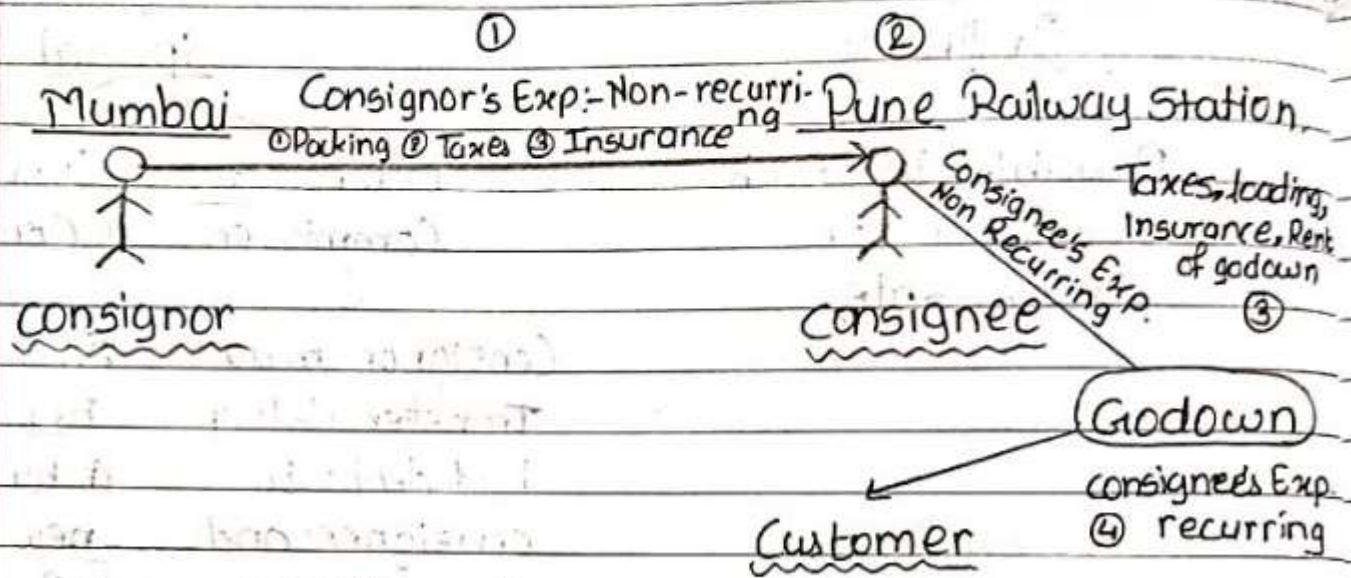 ① ②
Mumbai Consignor's Exp:-Non-recurri-ng Pune Railway Station
①Packing ② Taxes ③ Insurance
Consignee's Exp.
Non Recurring
Taxes, loading,
Insurance, Rent
of godown
③
consignor consignee
Godown
consignee's Exp.
④ recurring
Customer